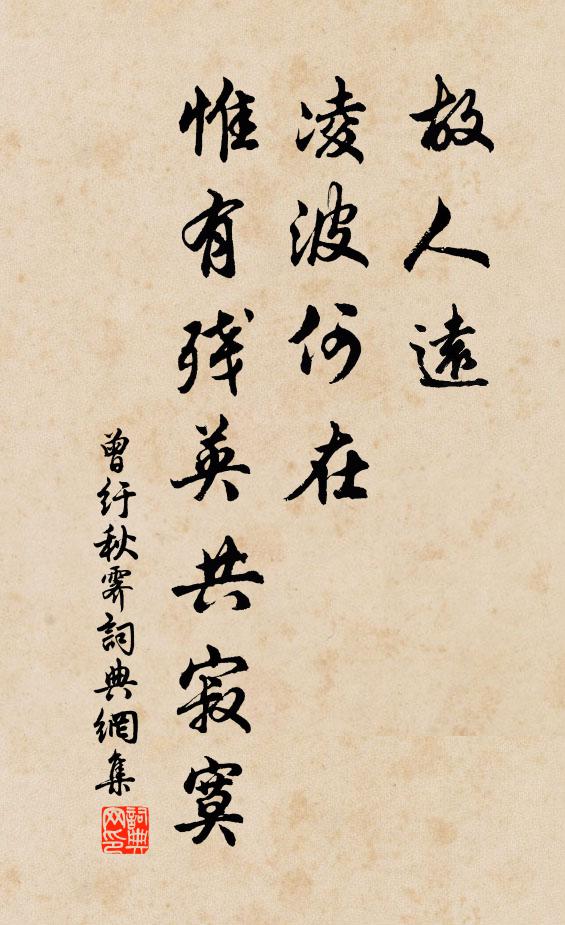 故人遠
凌波何在
惟有残英共寂寞
曾紆秋霽詞典網集
詞典
网印